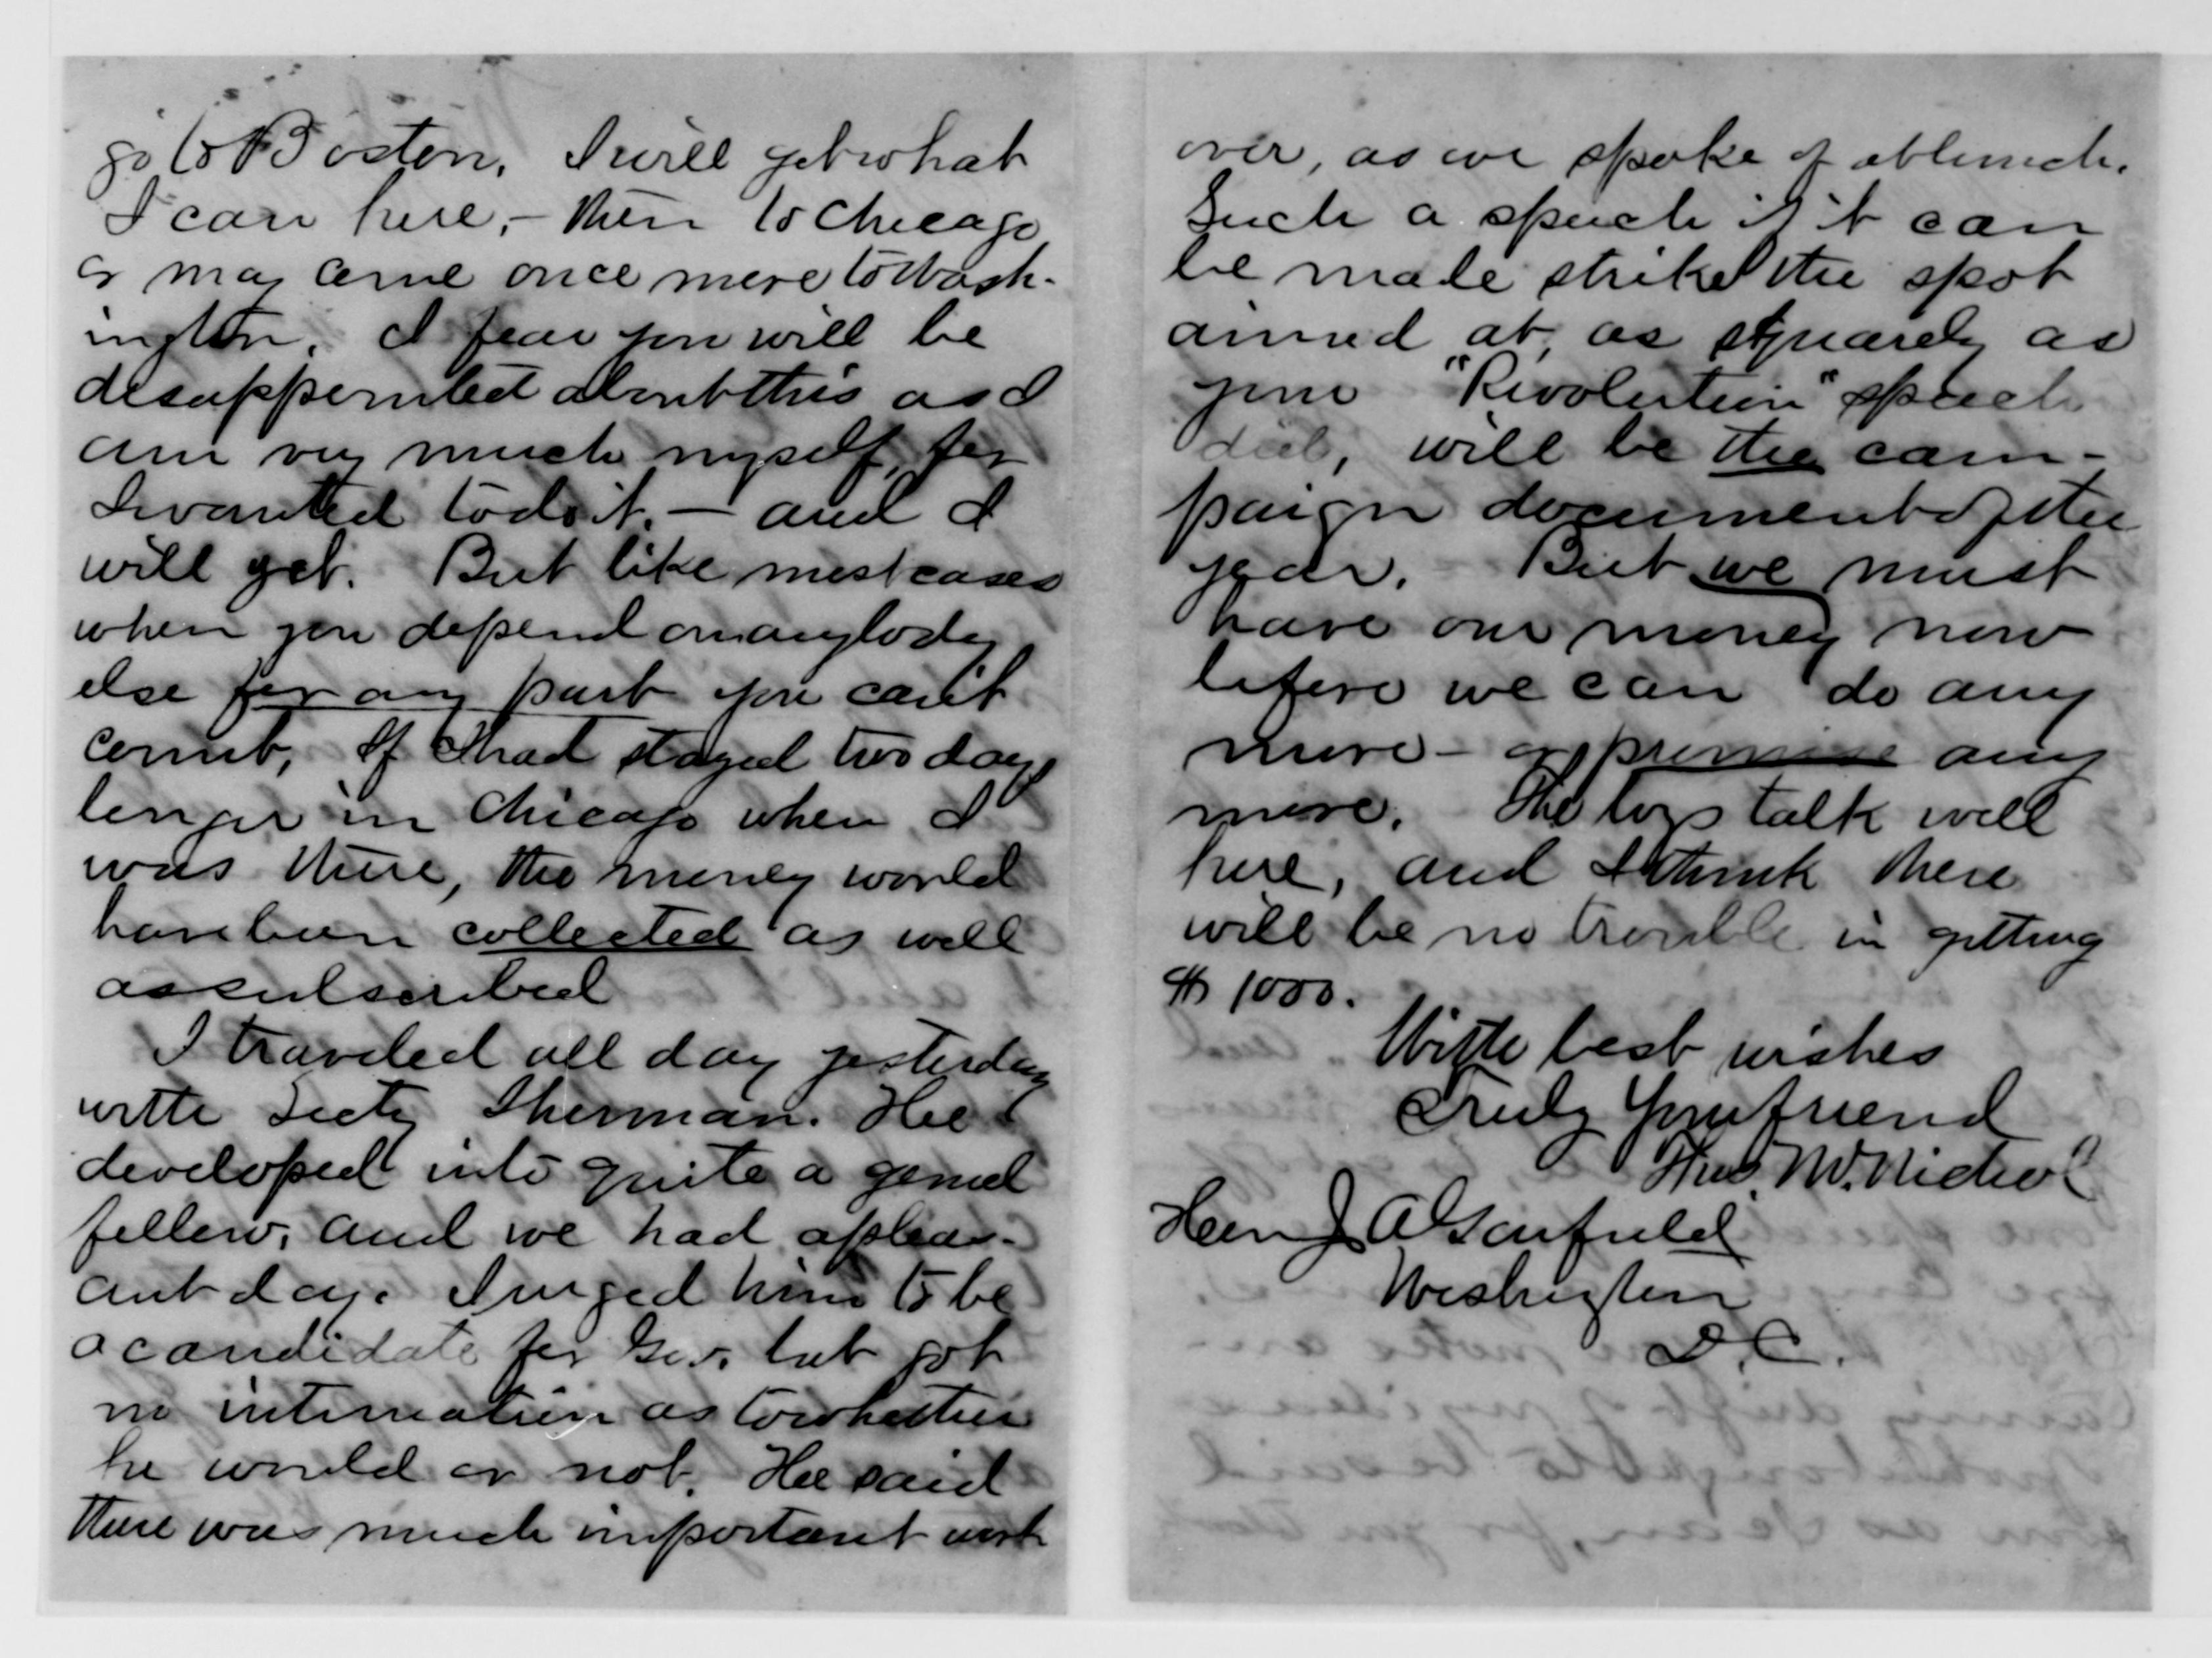 go to Boston, I will get what
I can here, - then to Chicago
or may come once more to Wash-
ington. I fear you will be
disappointed about this as I
am very much myself, for
I wanted to do it. - and I
will yet. But like most cases
when you depend on anybody
else for any part you can't
count, If I had stayed two days
longer in Chicago when I
was there, the money would
have been collected as well
as subscribed
I traveled all day yesterday
with Secty Sherman. He
developed into quite a genial
fellow, and we had a pleas-
ant day. I urged him to be
a candidate for Gov. but got
no intimation as to whether
he would or not. He said
there was much important work
over, as we spoke of at lunch.
Such a speech if it can
be made strike the spot
aimed at, as squarely as
your "Revolution" speech
did, will be the cam-
paign document of the
year. - But we must
have our money now
before we can do any
more - or promise any
more. - The boys talk well
here, and I think there
will be no trouble in getting
$1000.
With best wishes
Truly Your friend
Thos. M. Nichol
Hon J A Garfield
Washington
D.C.